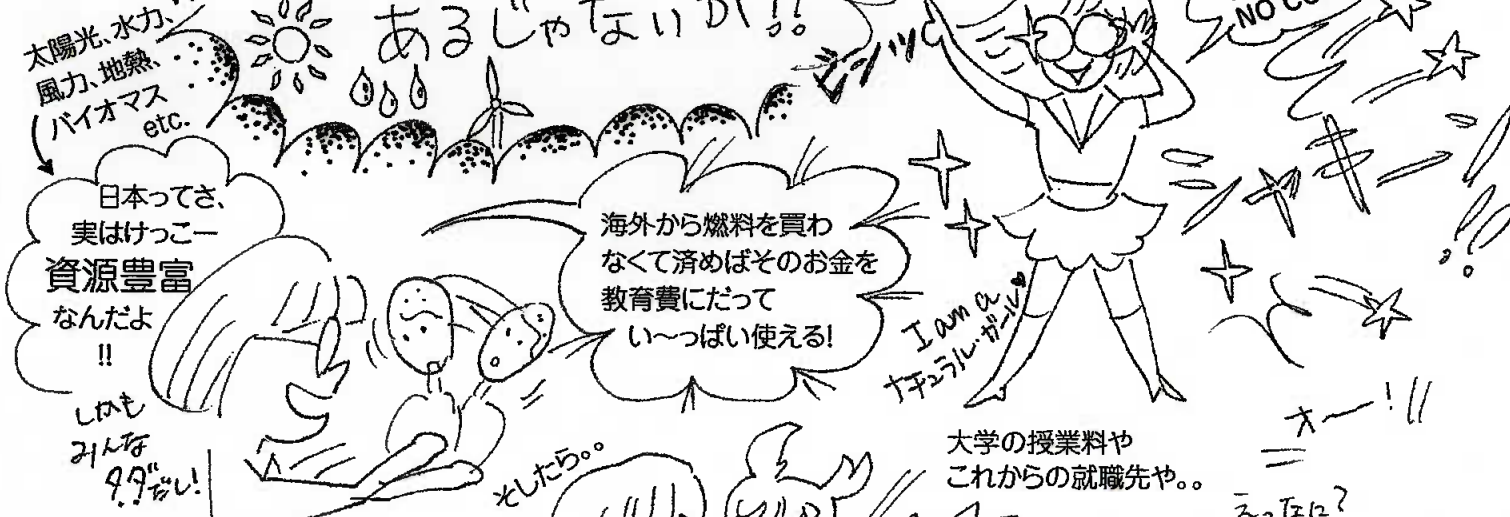 あるじゃないか!!
太陽光、水力、
風力、地熱、
バイオマス
etc.
日本ってさ、
実はけっこー
資源豊富
なんだよ
!!
しかも
みんな
タダだし!
海外から燃料を買わ
なくて済めばそのお金を
教育費にだって
い〜っぱい使える!
I am a
ナチュラル・ガール♥
NO
キー
そしたら。。
大学の授業料や
これからの就職先や。。
オー!!
えっなに?